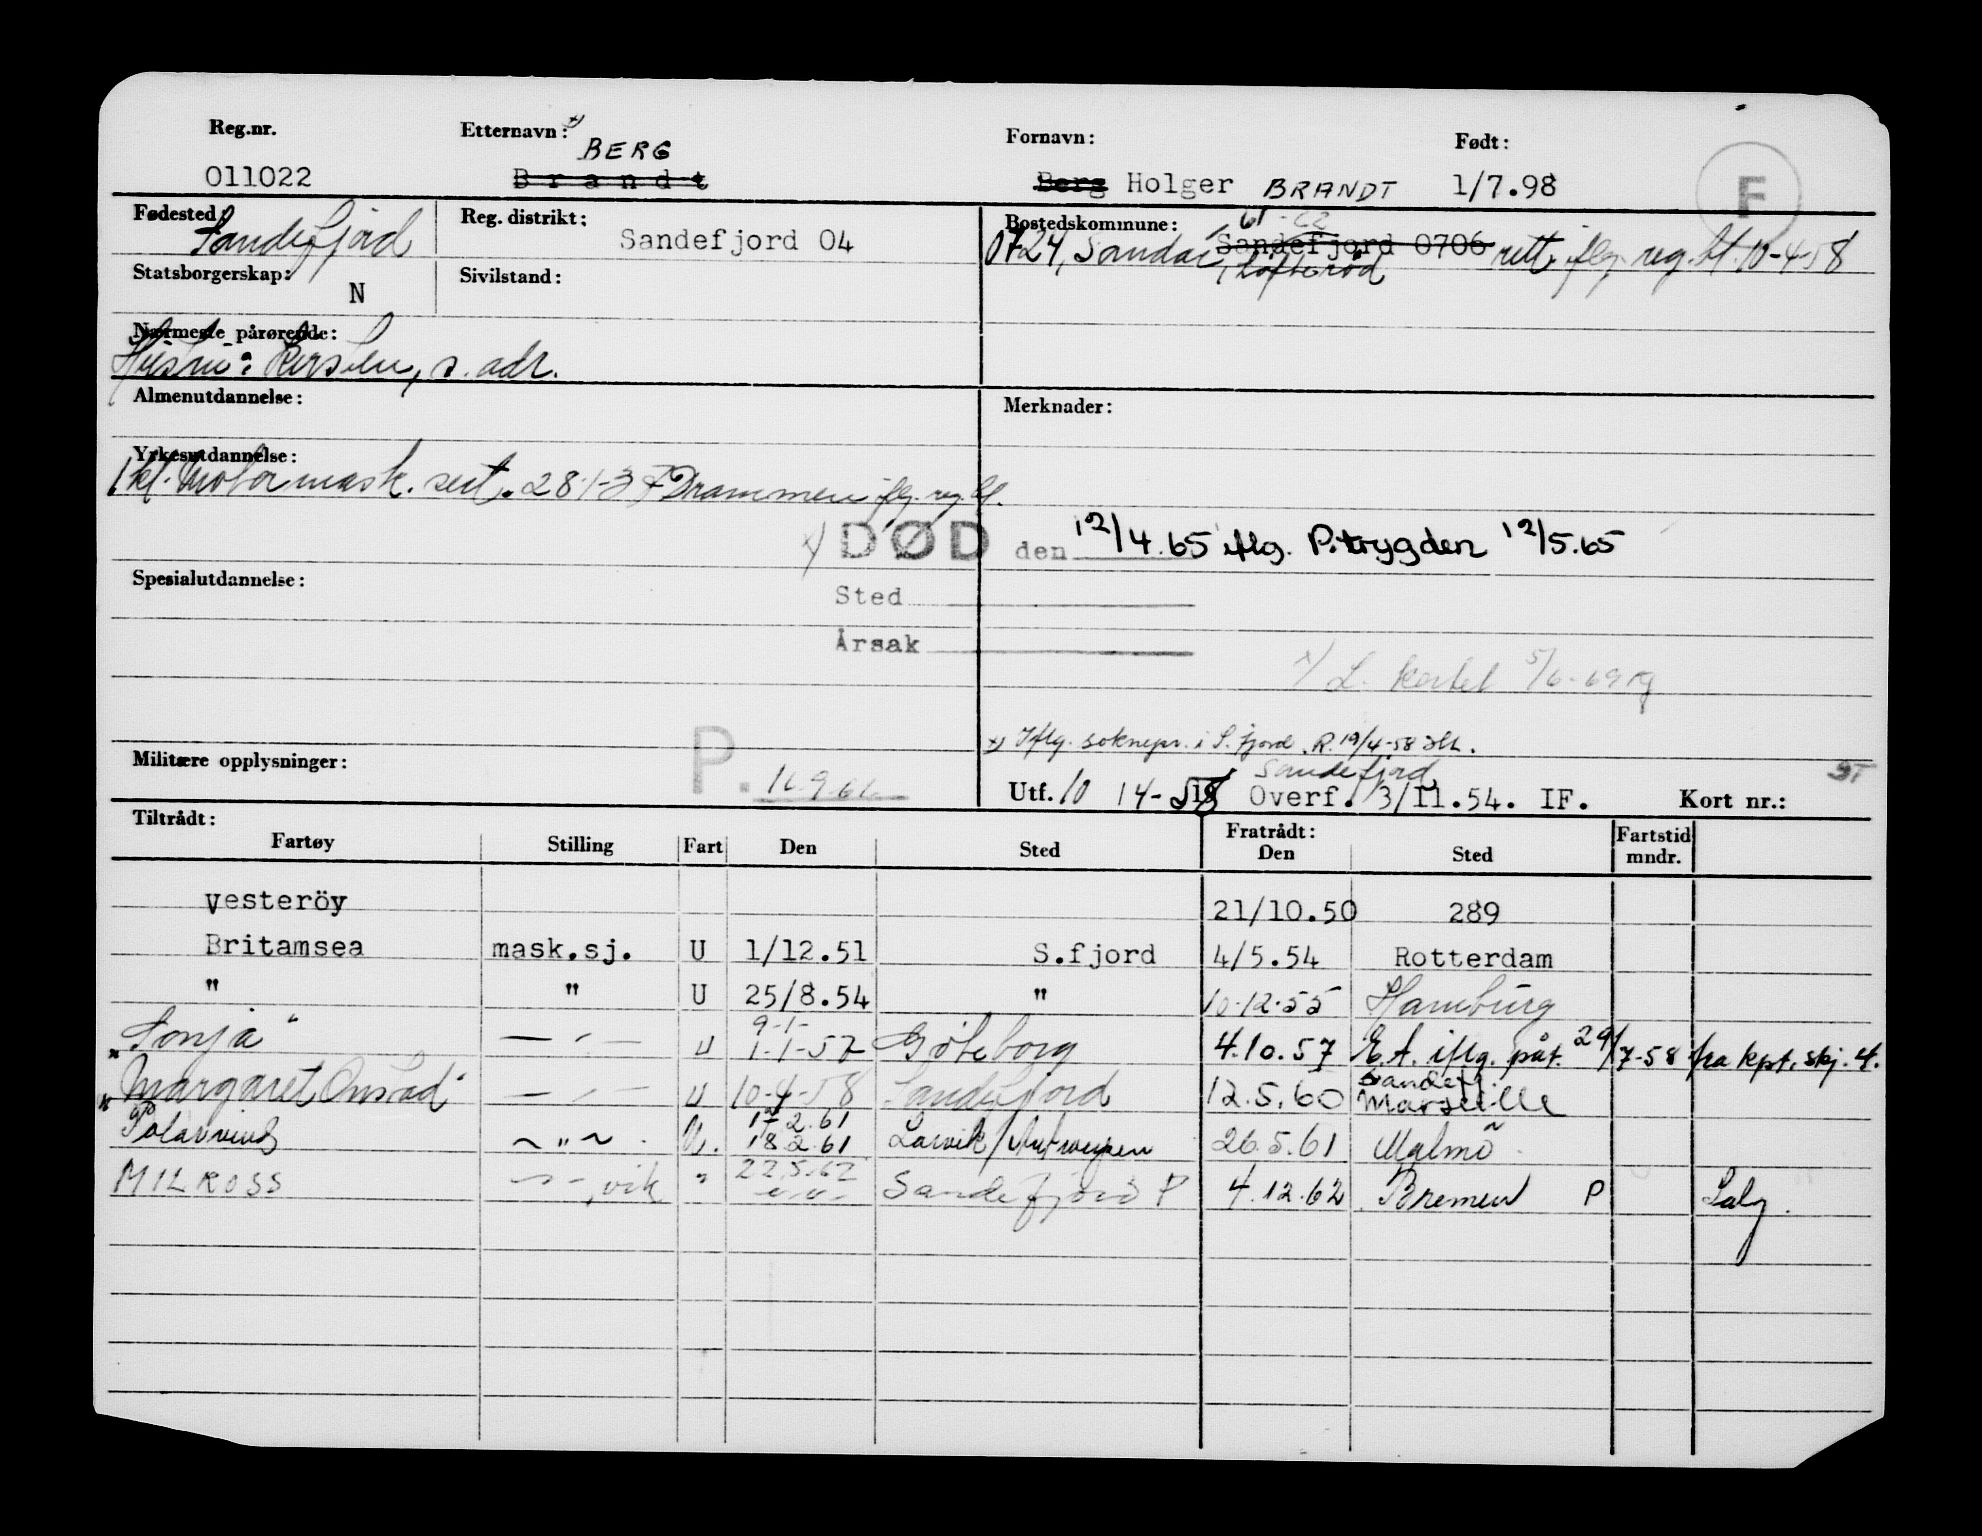 Reg.nr. Etternavn: x) Fornavn: Født:
BERG
011022 Brandt Berg Holger BRANDT 1/7.98 F
Fødested: Reg. distrikt: Bostedskommune:
Sandefjord Sandefjord 04 0724, Sandar, Sandefjord 0706 rett. iflg. reg.bl. 10-4-58
Statsborgerskap: Sivilstand:
N
Nærmeste pårørende:
Hustru: Kirsten, s. adr.
Almenutdannelse: Merknader:
Yrkesutdannelse:
1kl. Motormask. sert. 28-1-37 Drammen iflg. reg.bl.
x) DØD den 12/4.65 iflg. P.trygden 12/5.65
Spesialutdannelse:
Sted
Årsak
x) L. kartot 5/6-69
x) Iflg. soknepr. i S.fjord. R. 19/4-58
Militære opplysninger: P. 16.9.61
Sandefjord
Utf. 10 14-58 Overf. 3/11.54. IF. Kort nr.:
Tiltrådt: Fratrådt: Fartstid
Fartøy Stilling Fart Den Sted Den Sted mndr.
Vesteröy 21/10.50 289
Britamsea mask.sj. U 1/12.51 S.fjord 4/5.54 Rotterdam
" " U 25/8.54 " 10-12-55 Hamburg
9-1-
"Sonja" — " — U 1-1-57 Göteborg 4.10.57 E.A. iflg. påt. 29/7-58 fra kpt. skj. 4.
Sandefj.
"Margaret Onstad" — " — U 10-4-58 Sandefjord 12.5.60 Marseille
17.2.61
Polarvind ~ " ~ U. 18.2.61 Larvik/Antwerpen 26.5.61 Malmö
22.5.62
MILROSS — " —, vik " Sandefjord P 4.12.62 Bremen P Salg.